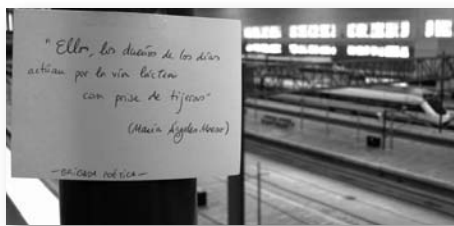 "Ellos, los dueños de los días
actúan por la vía láctea
con prisa de tijeras"
(María Ángeles Maeso)
—BRIGADA POÉTICA—